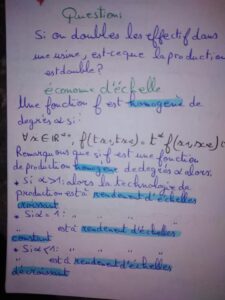 Question:
Si on doubles les effectif dans
une usine, est-ce que la production
est double?
économie d'échelle
Une fonction f est homogène de
degrés α si:
∀x∈ℝ f(tx₁,tx₂) = t^α f(x₁,x₂)
Remarquons que si f est une fonction
de production homogene de degrés α alors:
• Si α>1: alors la technologie de
production est à rendement d'échelles
croissant
• Si α = 1: " " "
" est à rendement d'échelles
constant
• Si α<1: " "
" est à rendement d'échelles
décroissant